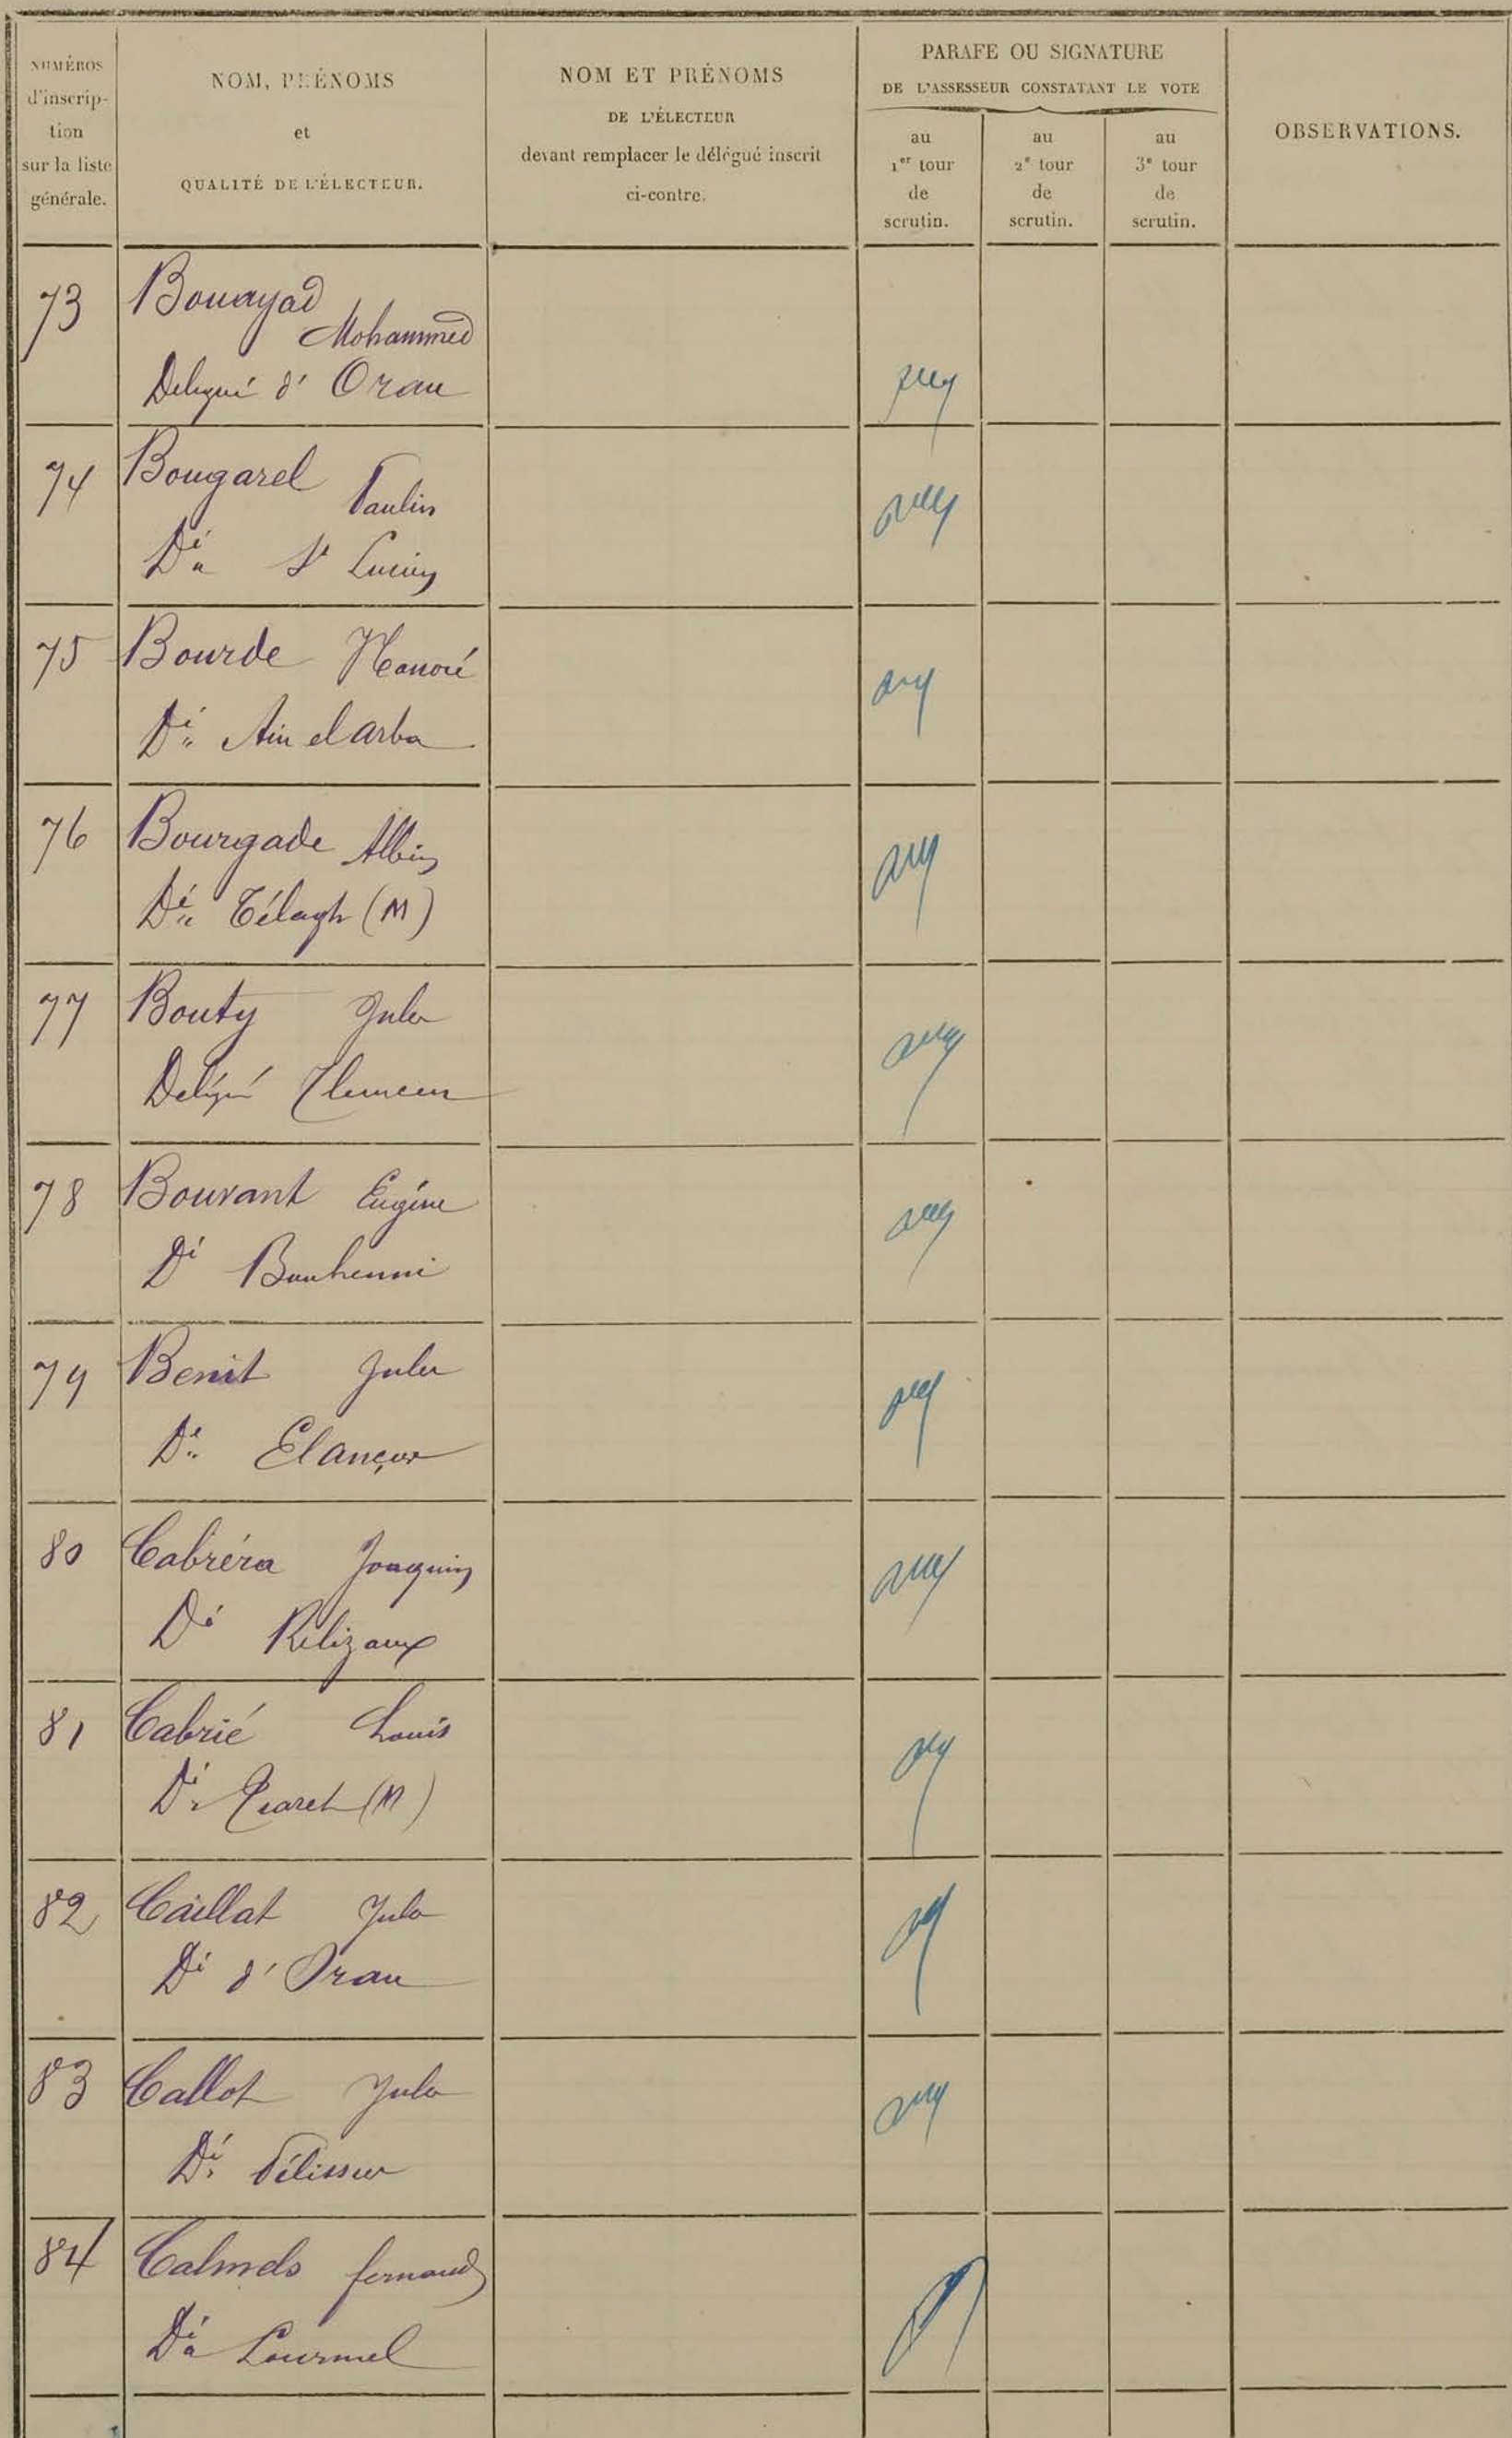 NUMÉROS
d'inscrip-
tion
sur la liste
générale.
NOM, PRÉNOMS
et
QUALITÉ DE L'ÉLECTEUR.
NOM ET PRÉNOMS
DE L'ÉLECTEUR
devant remplacer le délégué inscrit
ci-contre.
PARAFE OU SIGNATURE
DE L'ASSESSEUR CONSTATANT LE VOTE
au
1er tour
de
scrutin.
au
2e tour
de
scrutin.
au
3e tour
de
scrutin.
OBSERVATIONS.
73 Bouayad
Mohammed
Délégué d'Oran
74 Bougarel Paulin
Dé St Lucien
75 Bourde Honoré
Dé Ain el arba
76 Bourgade Albin
Dé Télagh (M)
77 Bouty Jules
Délégué Tlemcen
78 Bouvant Eugéne
Dé Bouhenni
79 Benit Jules
Dé El ançor
80 Cabréra Joaquin
Dé Rélizane
81 Cabrié Louis
Dé Tiaret (M)
82 Caillat Jules
Dé d'Oran
83 Callot Jules
Dé Pélissier
84 Calmels fernand
Dé à Lourmel